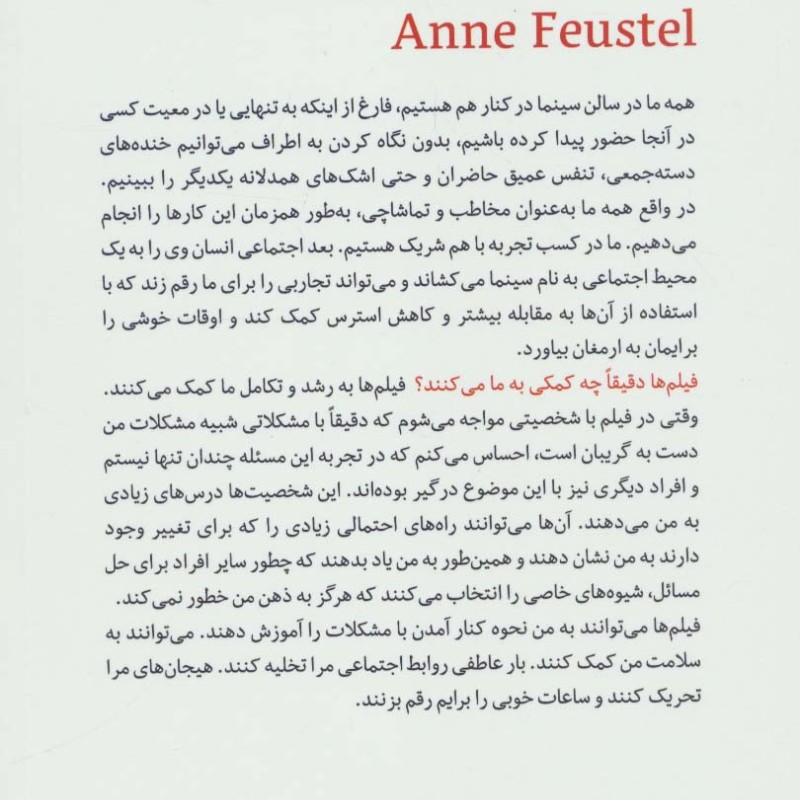 Anne Feustel
همه ما در سالن سینما در کنار هم هستیم، فارغ از اینکه به تنهایی یا در معیت کسی
در آنجا حضور پیدا کرده باشیم، بدون نگاه کردن به اطراف می‌توانیم خنده‌های
دسته‌جمعی، تنفس عمیق حاضران و حتی اشک‌های همدلانه یکدیگر را ببینیم.
در واقع همه ما به‌عنوان مخاطب و تماشاچی، به‌طور همزمان این کارها را انجام
می‌دهیم. ما در کسب تجربه با هم شریک هستیم. بعد اجتماعی انسان وی را به یک
محیط اجتماعی به نام سینما می‌کشاند و می‌تواند تجاربی را برای ما رقم زند که با
استفاده از آن‌ها به مقابله بیشتر و کاهش استرس کمک کند و اوقات خوشی را
برایمان به ارمغان بیاورد.
فیلم‌ها دقیقاً چه کمکی به ما می‌کنند؟ فیلم‌ها به رشد و تکامل ما کمک می‌کنند.
وقتی در فیلم با شخصیتی مواجه می‌شوم که دقیقاً با مشکلاتی شبیه مشکلات من
دست به گریبان است، احساس می‌کنم که در تجربه این مسئله چندان تنها نیستم
و افراد دیگری نیز با این موضوع درگیر بوده‌اند. این شخصیت‌ها درس‌های زیادی
به من می‌دهند. آن‌ها می‌توانند راه‌های احتمالی زیادی را که برای تغییر وجود
دارند به من نشان دهند و همین‌طور به من یاد بدهند که چطور سایر افراد برای حل
مسائل، شیوه‌های خاصی را انتخاب می‌کنند که هرگز به ذهن من خطور نمی‌کند.
فیلم‌ها می‌توانند به من نحوه کنار آمدن با مشکلات را آموزش دهند. می‌توانند به
سلامت من کمک کنند. بار عاطفی روابط اجتماعی مرا تخلیه کنند. هیجان‌های مرا
تحریک کنند و ساعات خوبی را برایم رقم بزنند.